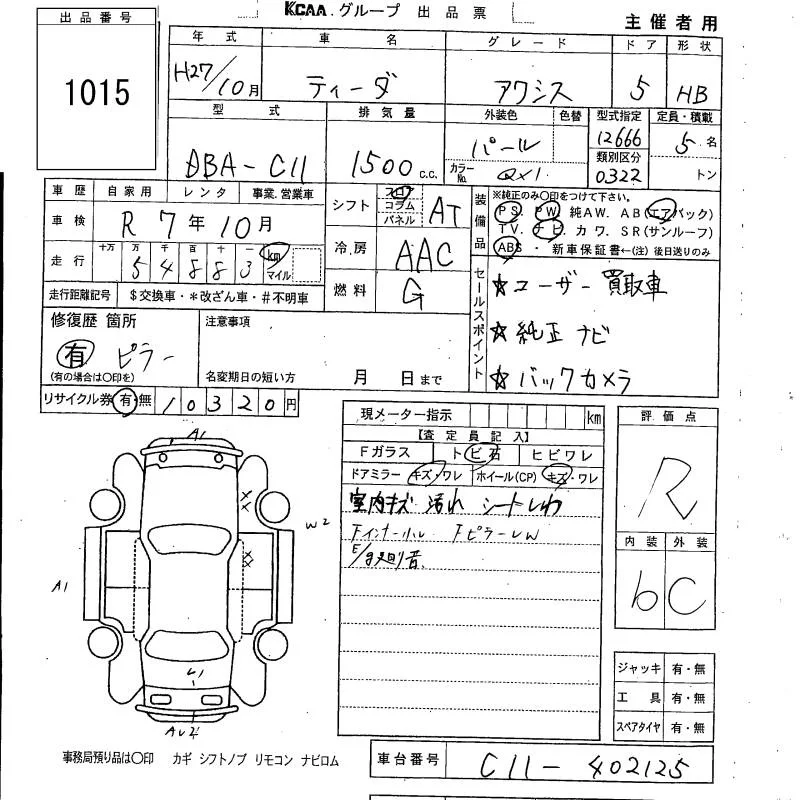 KCAA.グループ 出品票
主催者用
出品番号
1015
年式 車名 グレード ドア 形状
H27/10月 ティーダ アクシス 5 HB
型式 排気量 外装色 色替 型式指定 定員・積載
DBA-C11 1500 c.c. パール 12666 5名
カラーNo. QX1 類別区分 0322 トン
車歴 自家用 レンタ 事業.営業車
車検 R7年10月
走行 十万 万 千 百 十 一
54883 km マイル
走行距離記号 $交換車・*改ざん車・#不明車
シフト フロア コラム パネル AT
冷房 AAC
燃料 G
装備品 ※純正のみ○印をつけて下さい。
PS. PW 純AW. AB(エアバック)
TV. ナビ カワ. SR(サンルーフ)
ABS・ 新車保証書←(注)後日送りのみ
セールスポイント
☆ユーザー買取車
☆純正ナビ
☆バックカメラ
修復歴 箇所
有 ピラー
(有の場合は○印を)
注意事項
名変期日の短い方 月 日まで
リサイクル券 有・無 10320円
現メーター指示 km
【査定員記入】
Fガラス トビ石 ヒビワレ
ドアミラー キズ・ワレ ホイール(CP) キズ・ワレ
室内キズ 汚れ シートしわ
Fインナーホル FピラーLW
E/g廻り音
評価点
R
内装 外装
b C
ジャッキ 有・無
工具 有・無
スペアタイヤ 有・無
A1
W2
A1
L1
AU2
事務局預り品は○印 カギ シフトノブ リモコン ナビロム
車台番号 C11-402125